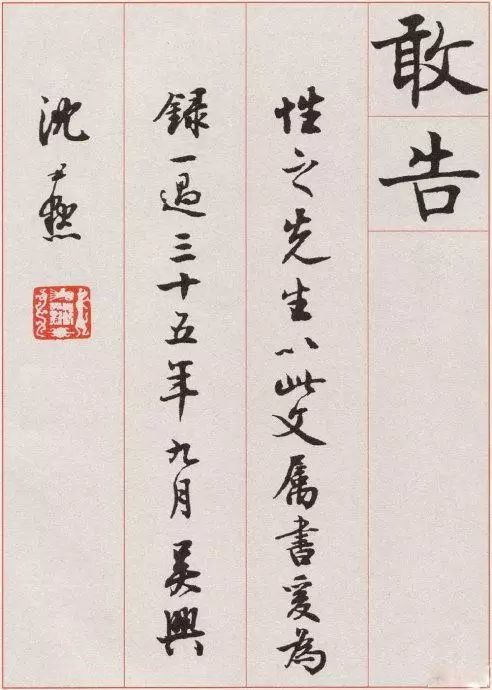 敢告
性之先生以此文属書爰為
録一過三十五年九月吴興
沈尹默